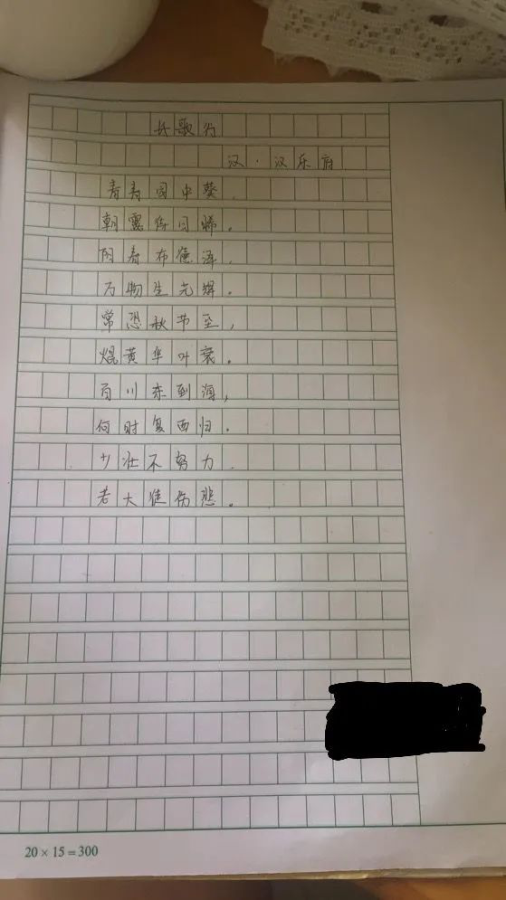 长歌行
汉·汉乐府
青青园中葵,
朝露待日晞。
阳春布德泽,
万物生光辉。
常恐秋节至,
焜黄华叶衰。
百川东到海,
何时复西归。
少壮不努力,
老大徒伤悲。
20×15=300